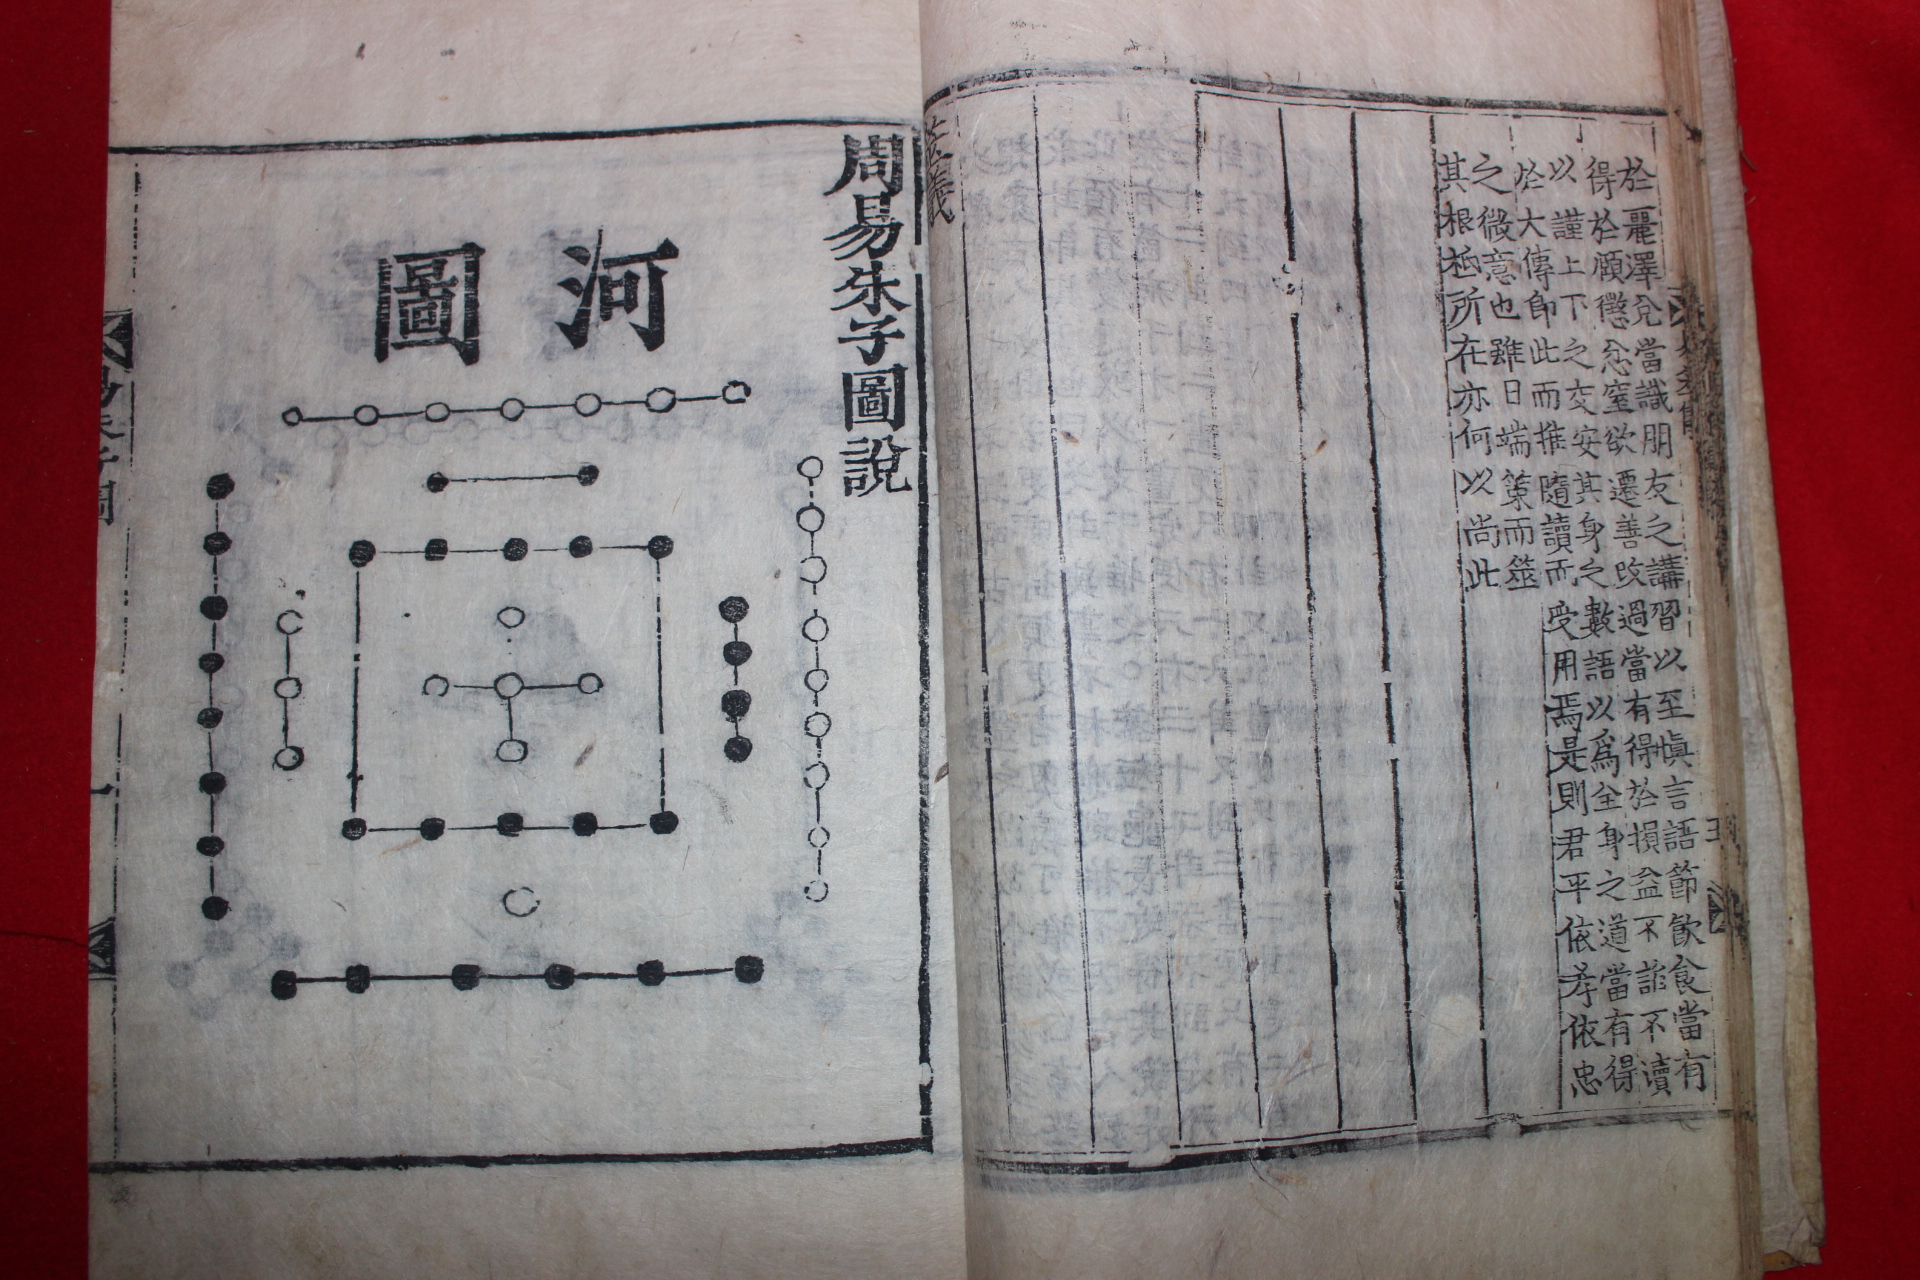 於麗澤兌當識朋友之講習以至愼言語節飮食當有
得於頤懲忿窒欲遷善改過當有得於損益不諂不瀆
以謹上下之交安其身之數語以爲全身之道當有得
於大傳即此而推隨讀而受用焉是則君平依孝依忠
之微意也雖日端策而筮
其根柢所在亦何以尚此
周易朱子圖說
河圖